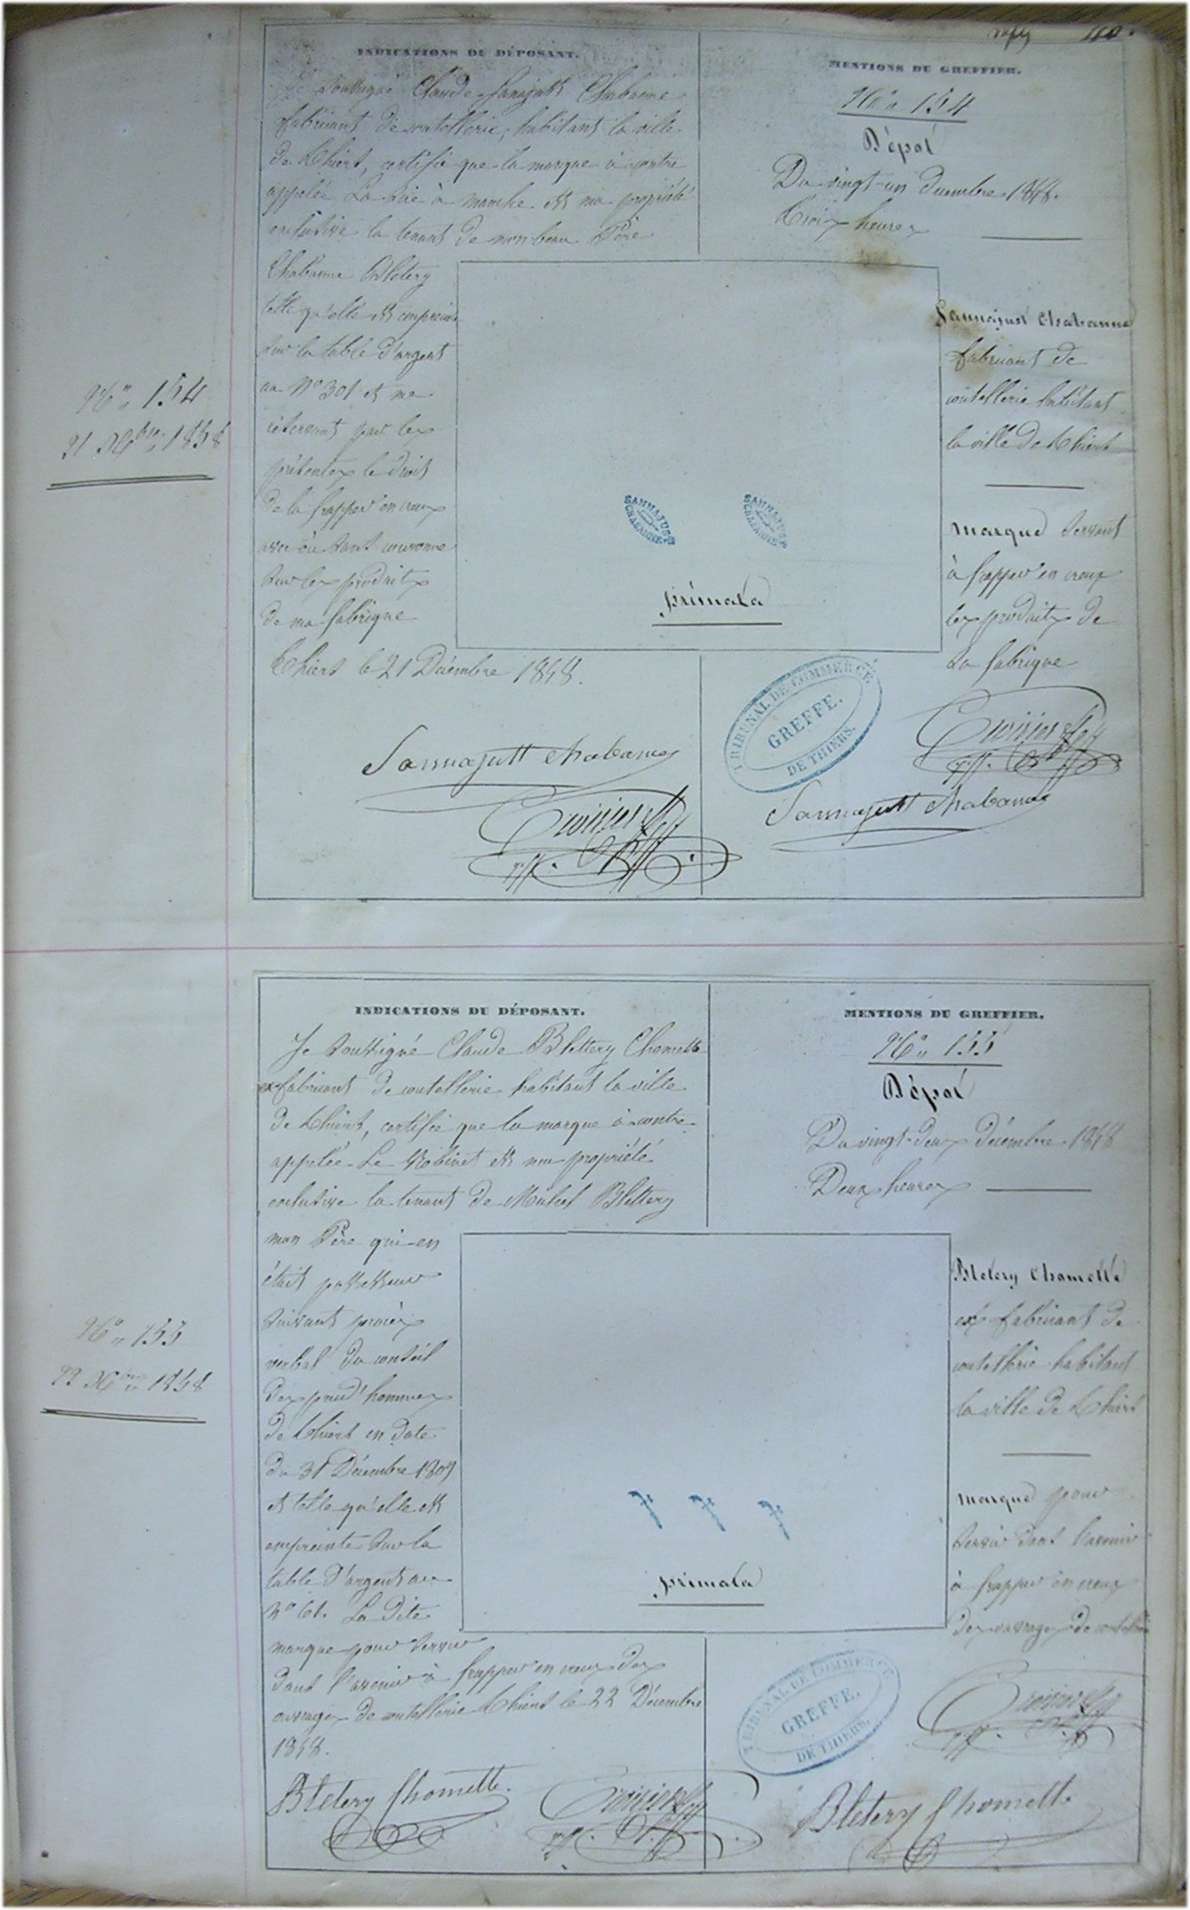 INDICATIONS DU DÉPOSANT.
Je soussigné Claude Sannajust Chabanne
fabricant de coutellerie, habitant la ville
de Thiers, certifie que la marque ci contre
appelée La Scie à manche est ma propriété
exclusive la tenant de mon beau Père
Chabanne Bletery
telle qu'elle est empreinte
sur la table d'argent
au No 301 et me
réservant par les
présentes le droit
de la frapper en creux
avec ou sans couronne
sur les produits
de ma fabrique
Thiers le 21 Décembre 1858.
Sannajust Chabanne
MENTIONS DU GREFFIER.
No 154
Dépot
Du vingt-un decembre 1858.
Trois heures
Sannajust Chabanne
fabricant de
coutellerie habitant
la ville de Thiers
marque servant
à frapper en creux
les produits de
La fabrique
SANNAJUST
CHABANNE
SANNAJUST
CHABANNE
primata
TRIBUNAL DE COMMERCE
GREFFE.
DE THIERS.
Sannajust Chabanne
No 154
21 Xbre 1858
INDICATIONS DU DÉPOSANT.
Je soussigné Claude Blettery Chomette
ex-fabricant de coutellerie habitant la ville
de Thiers, certifie que la marque ci-contre
appelée Le Robinet est ma propriété
exclusive la tenant de Michel Blettery
mon Père qui en
était possesseur
suivant procès
verbal du conseil
des prud'hommes
de Thiers en date
du 31 Décembre 1809
et telle qu'elle est
empreinte sur la
table d'argent au
No 61. La dite
marque pour servir
dans l'avenir à frapper en creux des
ouvrages de coutellerie Thiers le 22 Décembre
1858.
Bletery Chomette.
MENTIONS DU GREFFIER.
No 155
Dépot
Du vingt-deux décembre 1858
Deux heures
Bletery Chomette
ex fabricant de
coutellerie habitant
la ville de Thiers
marque pour
servir dans l'avenir
à frapper en creux
des ouvrages de coutellerie
primata
TRIBUNAL DE COMMERCE
GREFFE.
DE THIERS.
Bletery Chomette
No 155
22 Xbre 1858